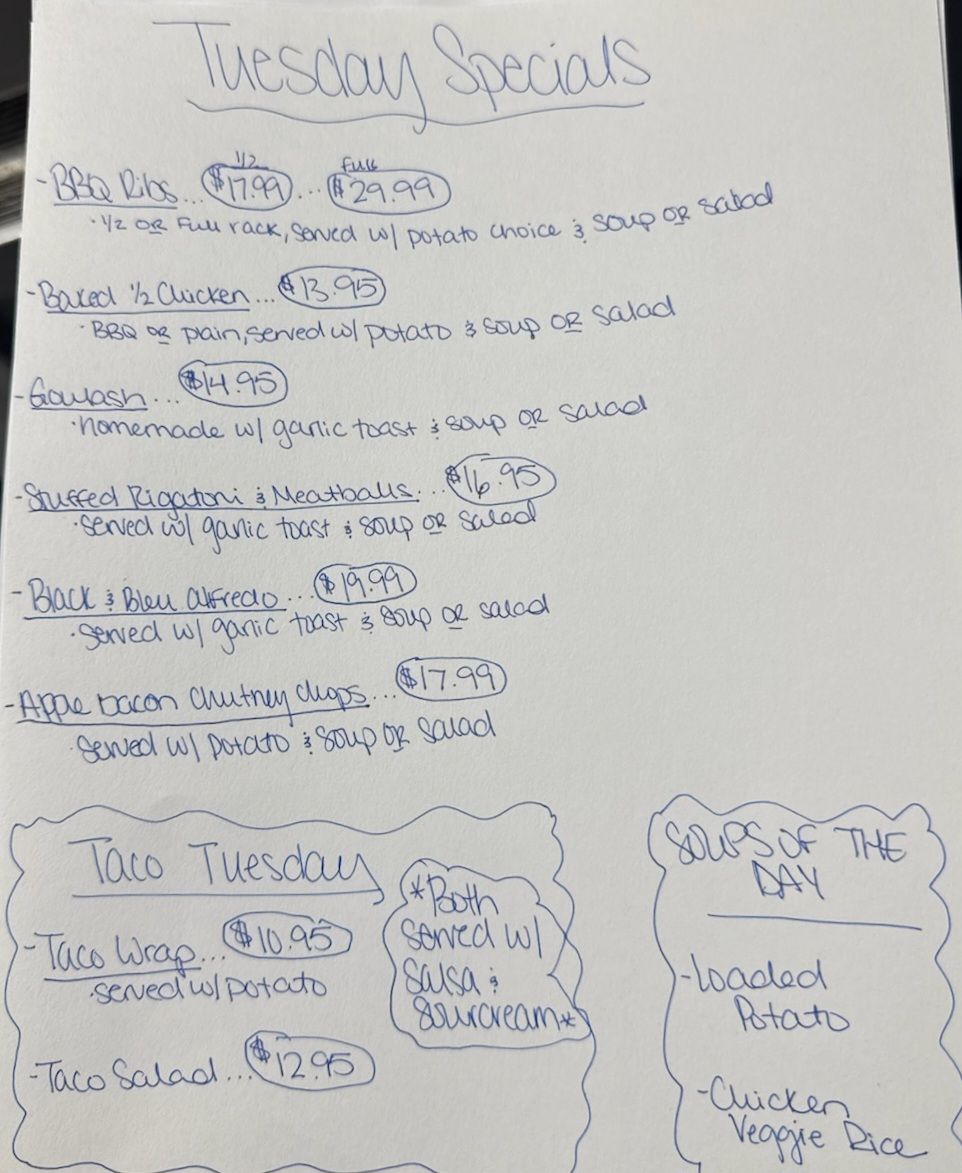 Tuesday Specials
1/2 Full
- BBQ Ribs... $17.99 ... $29.99
· 1/2 OR Full rack, served w/ potato choice & soup OR salad
- Baked 1/2 Chicken... $13.95
· BBQ OR plain, served w/ potato & soup OR salad
- Goulash... $14.95
· homemade w/ garlic toast & soup OR salad
- Stuffed Rigatoni & Meatballs... $16.95
· Served w/ garlic toast & soup OR salad
- Black & Bleu Alfredo... $19.99
· Served w/ garlic toast & soup OR salad
- Apple bacon Chutney Chops... $17.99
· Served w/ potato & soup OR salad
Taco Tuesday
- Taco Wrap... $10.95
· served w/ potato
- Taco Salad... $12.95
*Both
served w/
salsa &
sourcream*
SOUPS OF THE
DAY
- Loaded
Potato
- Chicken
Veggie Rice